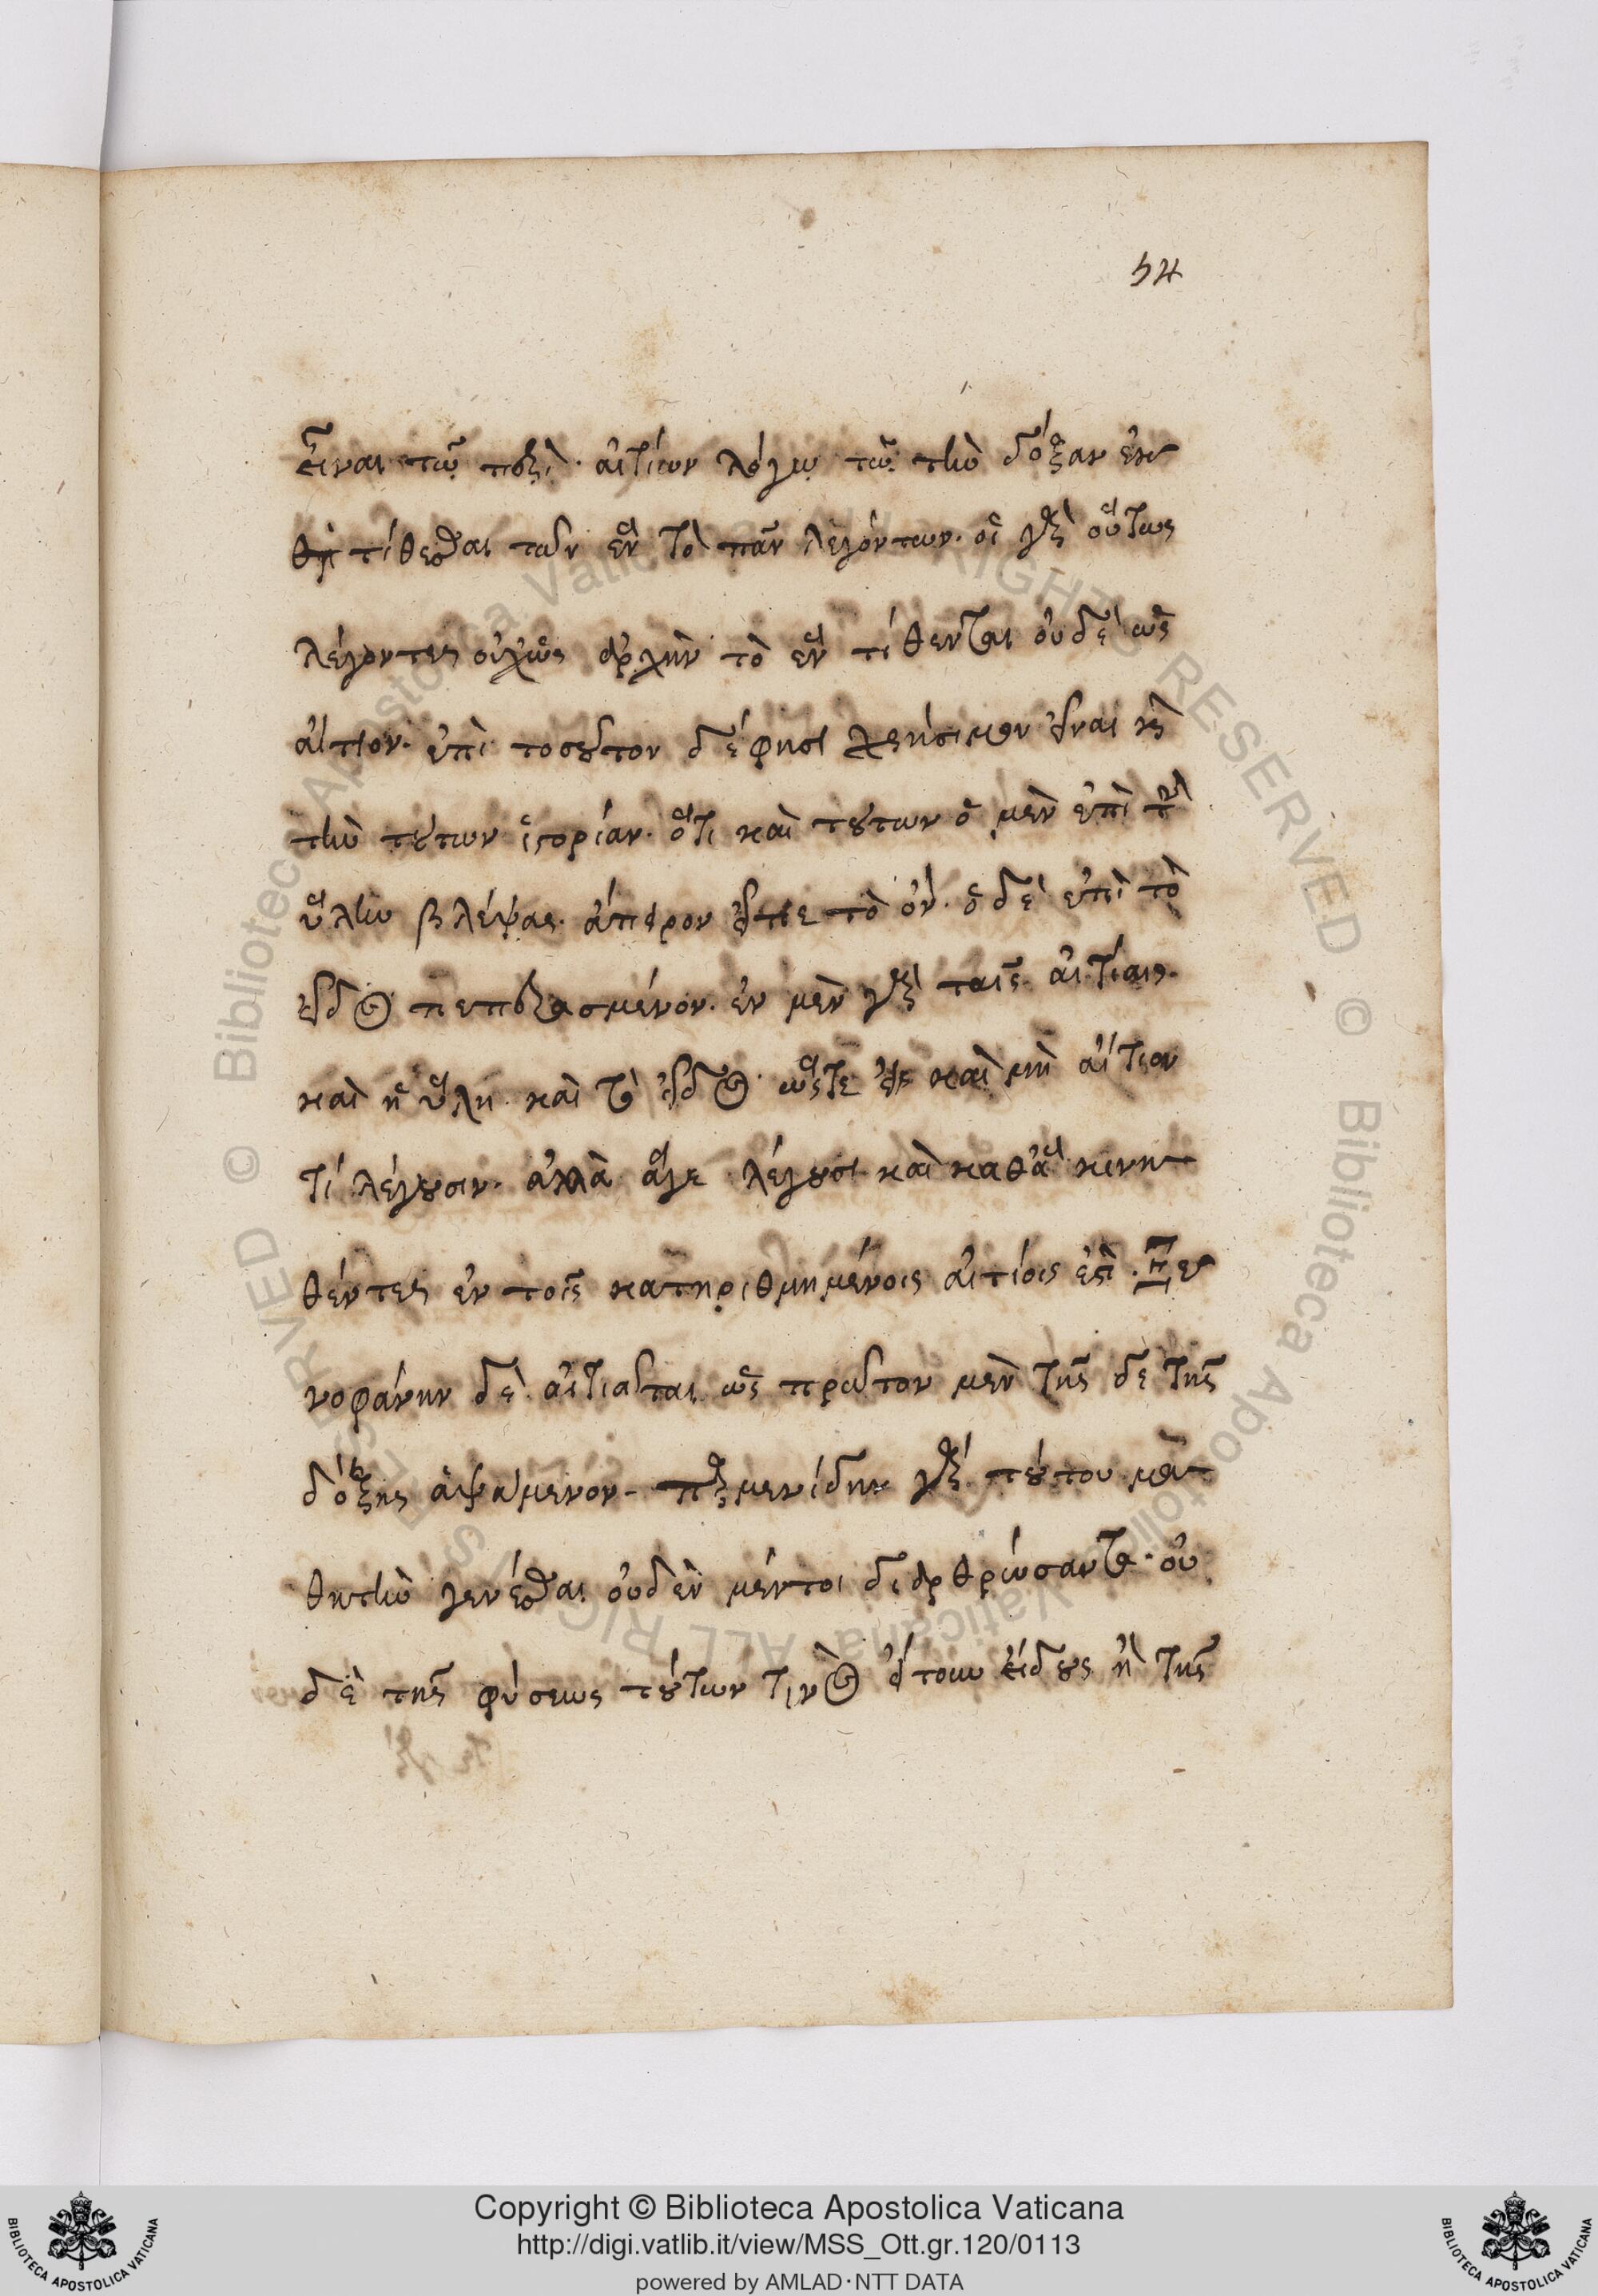 54
εἶναι τῷ περὶ αἰτίων λόγῳ τῷ τὴν δόξαν ἐν
τίθεσθαι τῶν ἓν τὸ πᾶν λεγόντων. οἱ γὰρ οὕτως
λέγοντες οὐχ ὡς ἀρχὴν τὸ ἓν τίθενται οὐδὲ ὡς
αἴτιον. ἐπὶ τοσοῦτον δέ φησι χρήσιμον εἶναι καὶ
τὴν τούτων ἱστορίαν. ὅτι καὶ τούτων ὁ μὲν ἐπὶ τὴν
ὕλην βλέψας. ἄπειρον εἶπε τὸ ὄν. ὁ δὲ ἐπὶ τὸ
εἶδος πεπερασμένον. ἐν μὲν γὰρ ταῖς αἰτίαις.
καὶ ἡ ὕλη. καὶ τὸ εἶδος. ὥστε εἰ καὶ μὴ αἴτιον
τί λέγουσιν. ἀλλὰ ἅγε λέγουσι καὶ καθ' ἃ κινη
θέντες ἐν τοῖς κατηριθμημένοις αἰτίοις ἐστί. Ξε
νοφάνην δὲ αἰτιᾶται ὡς πρῶτον μὲν τῆς δε τῆς
δόξης ἁψάμενον. παρμενίδην γάρ τούτου μα
θητὴν γενέσθαι οὐδὲν μέντοι διαρθρώσαντα. οὐ
δὲ τῆς φύσεως τούτων τινὸς ἤτοι εἴδους ἢ τῆς
Copyright © Biblioteca Apostolica Vaticana
http://digi.vatlib.it/view/MSS_Ott.gr.120/0113
powered by AMLAD·NTT DATA